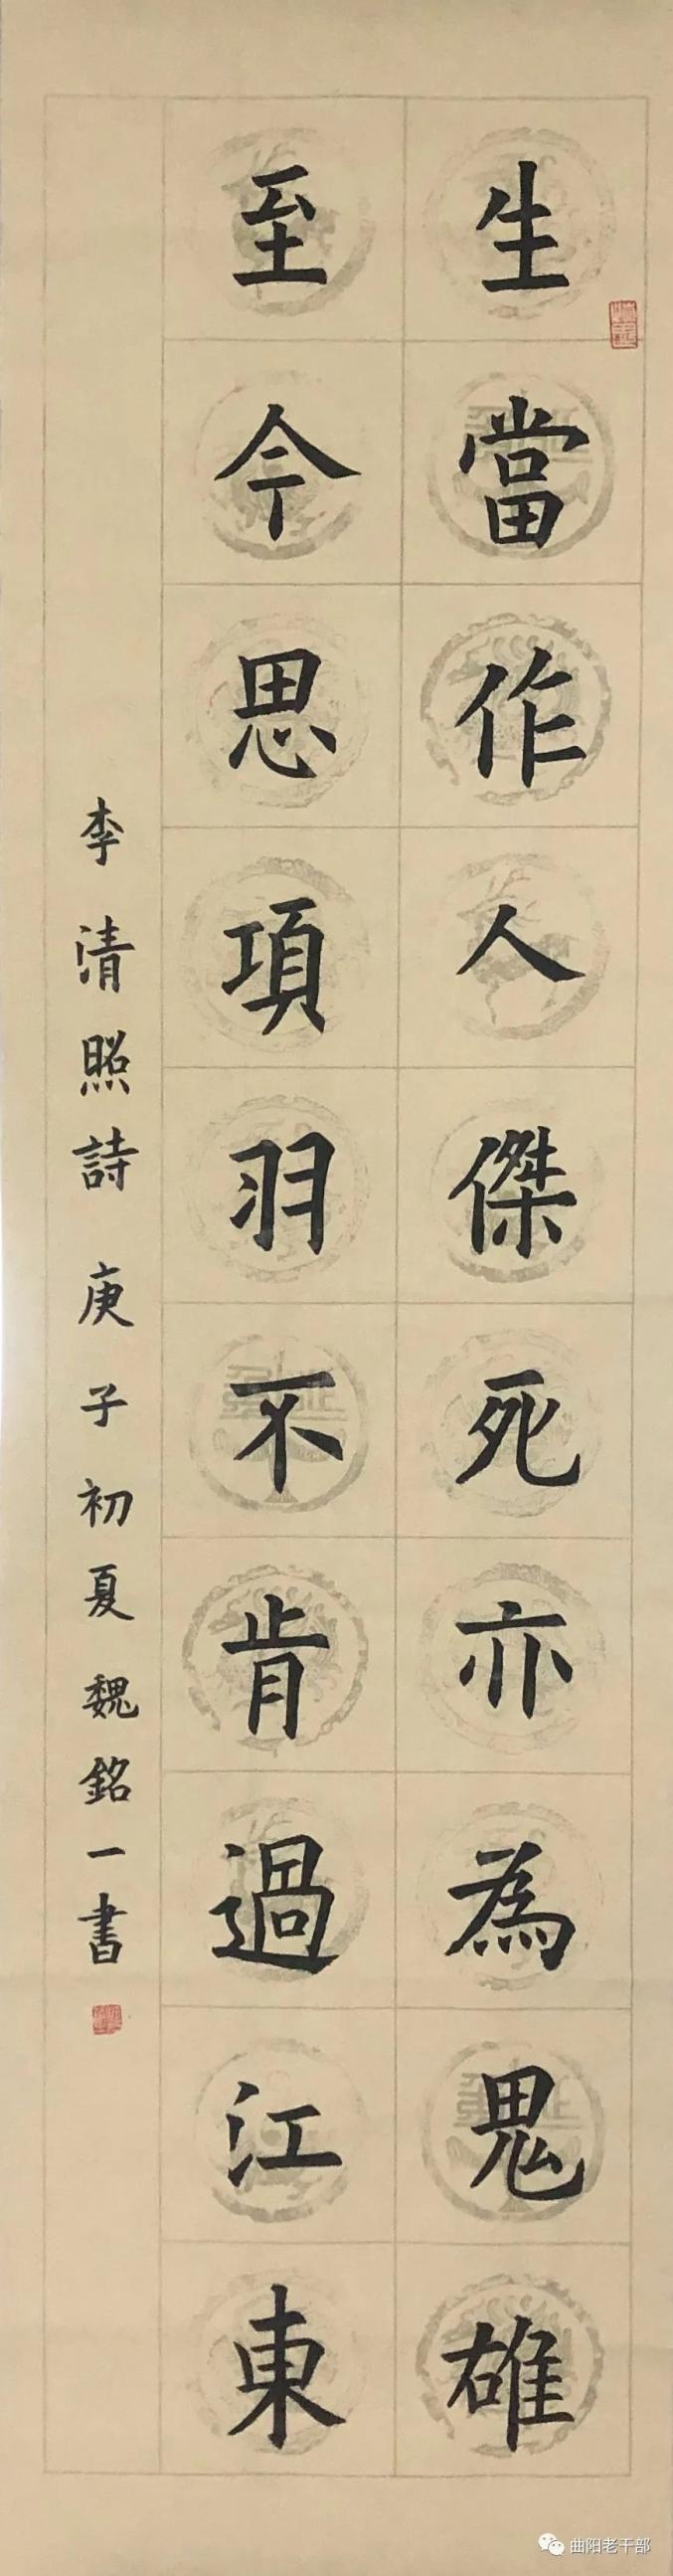 生當作人傑死亦為鬼雄
至今思項羽不肯過江東
李清照詩庚子初夏魏銘一書
曲阳老干部